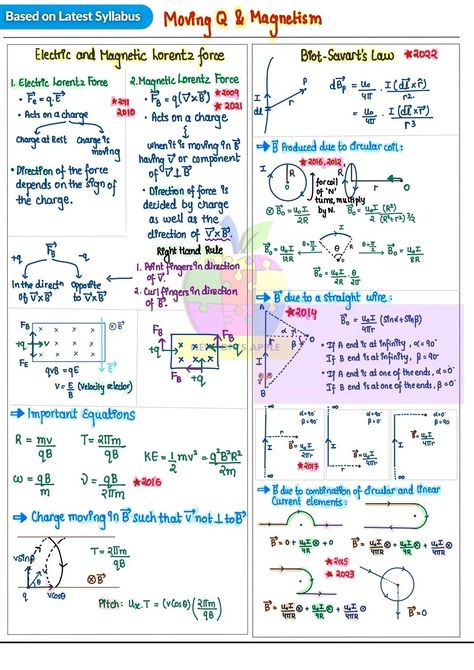 Based on Latest Syllabus
Moving Q & Magnetism
Electric and Magnetic Lorentz force
1. Electric Lorentz Force
• F⃗e = q.E⃗
★2011
2010
• Acts on a charge
Charge at Rest
Charge is moving
• Direction of the force
depends on the sign of
the charge.
2. Magnetic Lorentz Force
• F⃗B = q(V⃗×B⃗)
★2009
★2021
• Acts on a charge
when it is moving in B⃗
having V⃗ or component
of V⃗ ⊥ B⃗
• Direction of force is
decided by charge
as well as the
direction of V⃗×B⃗.
+q F⃗B -q
In the directn of V⃗×B⃗
Opposite to V⃗×B⃗
Right Hand Rule
1. Point fingers in direction
of V⃗.
2. Curl fingers in direction
of B⃗.
FB
+q
FE
⊗B⃗
qVB = qE
V = E/B (Velocity selector)
FB
+q
FB
FB
+q
FB
→ Important Equations
R = mv/qB
T = 2πm/qB
KE = 1/2 mv² = q²B²R²/2m
ω = qB/m
ν = qB/2πm
★2016
→ Charge moving in B⃗ such that V⃗ not ⊥ to B⃗
vsinθ
v
θ
q
vcosθ
T = 2πm/qB
⊗B⃗
Pitch: ux.T = (vcosθ)(2πm/qB)
Biot-Savart's Law
★2022
I
dl
r
P
dB⃗p = u₀/4π · I(dl⃗×r̂)/r²
= u₀/4π · I(dl⃗×r⃗)/r³
→ B⃗ Produced due to circular coil:
★2016, 2012,
I
R
O
for coil
of 'N'
turns, multiply
by N.
R
r
O
⊗B⃗₀ = u₀I/2R
B⃗₀ = u₀I/2 (R²)/(R²+r²)3/2
B⃗₀ = u₀I/4R
θ=π/2
B⃗₀ = u₀I/8R
B⃗₀ = u₀I/2R · θ/2π
→ B⃗ due to a straight wire:
★2014
A
I
B
α
β
r
B⃗₀ = u₀I/4πr (sinα+sinβ)
• If A end is at infinity, α=90°
If B end is at infinity, β=90°
• If A end is at one of the ends, α=0°
If B end is at one of the ends, β=0°
THE NEET'S APPLE
∞
α=90°
β=90°
u₀I/2πr
★2017
∞
α=90°
β=0°
u₀I/4πr
α=0°
β=90°
u₀I/4πr
→ B⃗ due to combination of Circular and linear
Current elements:
B⃗ = 0 + u₀I/4R + 0
B⃗ = u₀I/4πR + u₀I/4R + u₀I/4πR
★2015
★2023
B⃗ = u₀I/4πR + u₀I/4R + u₀I/4πR
B⃗ = 0